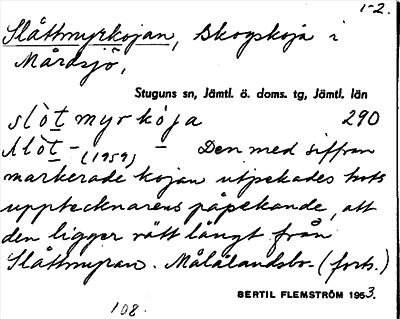 1-2.
Slåttmyrkojan, Skogskoja i
Mårdsjö,
Stuguns sn, Jämtl. ö. doms. tg, Jämtl. län
slòt myr kója 290
slòt - (1959) - Den med siffran
markerade kojan utpekades trots
upptecknarens påpekande, att
den ligger rätt långt från
Slåttmyran. Målålandsbo. (forts.)
BERTIL FLEMSTRÖM 1953.
108.